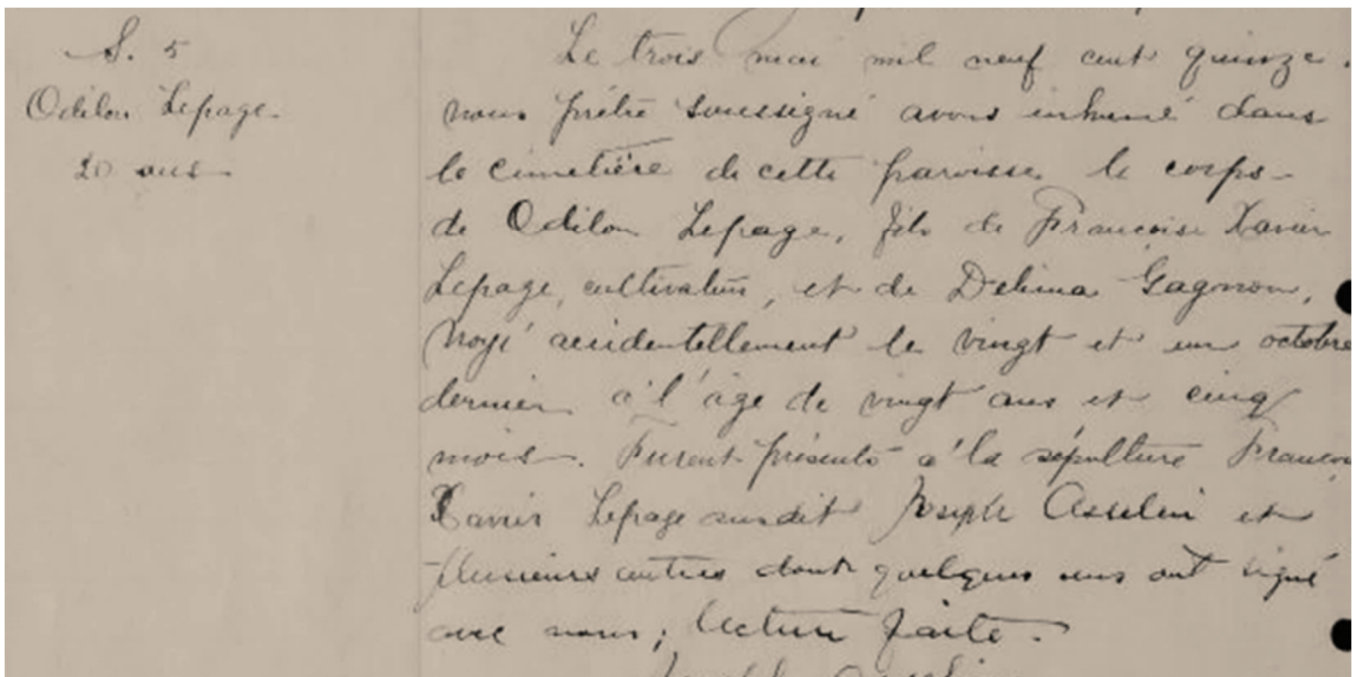 S. 5
Odilon Lepage
20 ans
Le trois mai mil neuf cent quinze.
nous prêtre soussigné avons inhumé dans
le cimetière de cette paroisse le corps
de Odilon Lepage, fils de François Xavier
Lepage, cultivateur, et de Delima Gagnon,
noyé accidentellement le vingt et un octobre
dernier à l'âge de vingt ans et cinq
mois. Furent présents à la sépulture François
Xavier Lepage susdit Joseph Asselin et
plusieurs autres dont quelques uns ont signé
avec nous; lecture faite.
Joseph Asselin